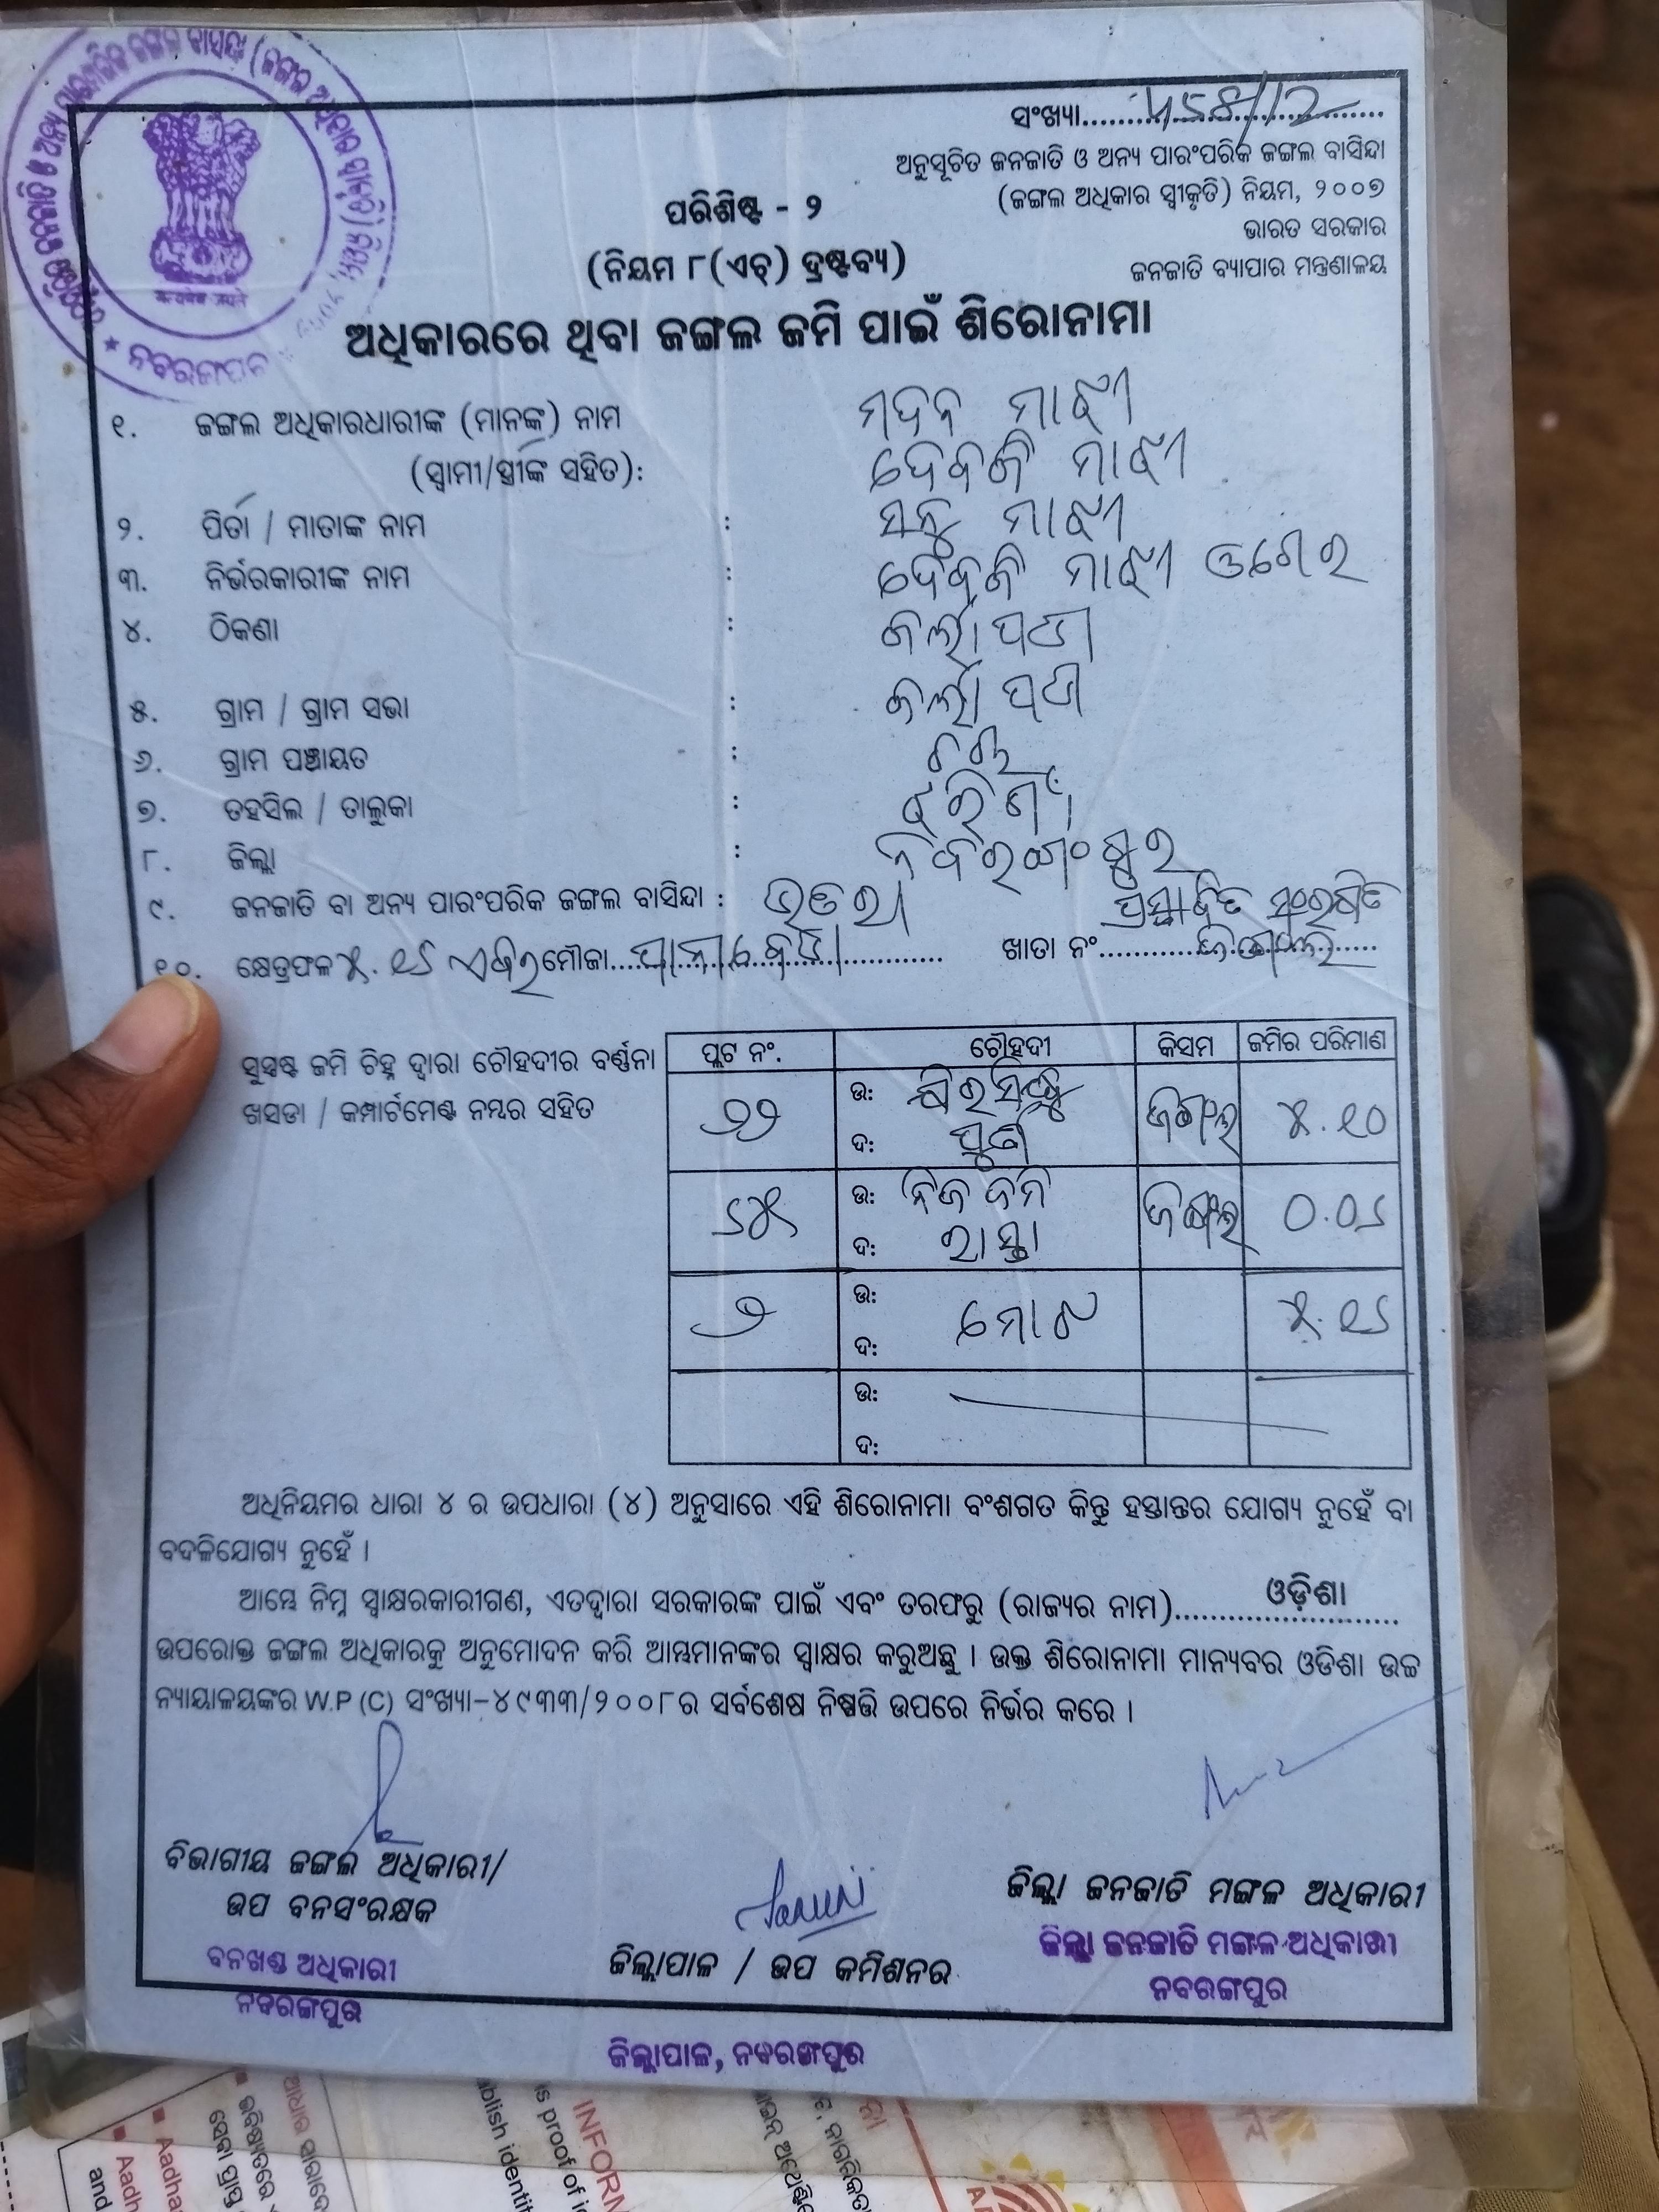 ସଂଖ୍ୟା
ଅନୁସୂଚିତ ଜନଜାତି ଓ ଅନ୍ୟ ପାରଂପରିକ ଜଙ୍ଗଲ ବାସିନ୍ଦା
(ଜଙ୍ଗଲ ଅଧିକାର ସ୍ୱୀକୃତି) ନିୟମ, ୨୦୦୭
ଭାରତ ସରକାର
ଜନଜାତି ବ୍ୟାପାର ମନ୍ତ୍ରଣାଳୟ
ପରିଶିଷ୍ଟ - ୨
(ନିୟମ ୮(ଏଚ୍) ଦ୍ରଷ୍ଟବ୍ୟ)
ଅଧିକାରରେ ଥିବା ଜଙ୍ଗଲ ଜମି ପାଇଁ ଶିରୋନାମା
୧. ଜଙ୍ଗଲ ଅଧିକାରଧାରୀଙ୍କ (ମାନଙ୍କ) ନାମ ମଦନ ମାଝୀ
(ସ୍ୱାମୀ/ସ୍ତ୍ରୀଙ୍କ ସହିତ): ଦେବକି ମାଝୀ
୨. ପିତା / ମାତାଙ୍କ ନାମ : ମାଝୀ
୩. ନିର୍ଭରକାରୀଙ୍କ ନାମ : ଦେବକି ମାଝୀ ଓଗେର
୪. ଠିକଣା :
୫. ଗ୍ରାମ / ଗ୍ରାମ ସଭା :
୬. ଗ୍ରାମ ପଞ୍ଚାୟତ :
୭. ତହସିଲ / ତାଲୁକା : ଝରିଗାଁ
୮. ଜିଲ୍ଲା : ନବରଙ୍ଗପୁର
୯. ଜନଜାତି ବା ଅନ୍ୟ ପାରଂପରିକ ଜଙ୍ଗଲ ବାସିନ୍ଦା : ଭତରା ପ୍ରସ୍ତାବିତ ସଂରକ୍ଷିତ
୧୦. କ୍ଷେତ୍ରଫଳ ୫.୧୨ ଏକର ମୌଜା ଖାତା ନଂ ଜଙ୍ଗଲ
ସୁସ୍ପଷ୍ଟ ଜମି ଚିହ୍ନ ଦ୍ୱାରା ଚୌହଦୀର ବର୍ଣ୍ଣନା
ଖସଡା / କମ୍ପାର୍ଟମେଣ୍ଟ ନମ୍ବର ସହିତ
ପ୍ଲଟ ନଂ. ଚୌହଦୀ କିସମ ଜମିର ପରିମାଣ
୭୭ ଉ: ଜଙ୍ଗଲ ୫.୧୦
ଦ:
ଉ: ନିଜ ଜମି ଜଙ୍ଗଲ ୦.୦୨
ଦ: ରାସ୍ତା
୨ ଉ: ମୋଟ ୫.୧୨
ଦ:
ଉ:
ଦ:
ଅଧିନିୟମର ଧାରା ୪ ର ଉପଧାରା (୪) ଅନୁସାରେ ଏହି ଶିରୋନାମା ବଂଶଗତ କିନ୍ତୁ ହସ୍ତାନ୍ତର ଯୋଗ୍ୟ ନୁହେଁ ବା
ବଦଳିଯୋଗ୍ୟ ନୁହେଁ ।
ଆମ୍ଭେ ନିମ୍ନ ସ୍ୱାକ୍ଷରକାରୀଗଣ, ଏତଦ୍ୱାରା ସରକାରଙ୍କ ପାଇଁ ଏବଂ ତରଫରୁ (ରାଜ୍ୟର ନାମ) ଓଡ଼ିଶା
ଉପରୋକ୍ତ ଜଙ୍ଗଲ ଅଧିକାରକୁ ଅନୁମୋଦନ କରି ଆମ୍ଭମାନଙ୍କର ସ୍ୱାକ୍ଷର କରୁଅଛୁ । ଉକ୍ତ ଶିରୋନାମା ମାନ୍ୟବର ଓଡିଶା ଉଚ୍ଚ
ନ୍ୟାୟାଳୟଙ୍କର W.P (C) ସଂଖ୍ୟା-୪୯୩୩/୨୦୦୮ର ସର୍ବଶେଷ ନିଷ୍ପତ୍ତି ଉପରେ ନିର୍ଭର କରେ ।
ବିଭାଗୀୟ ଜଙ୍ଗଲ ଅଧିକାରୀ/
ଉପ ବନସଂରକ୍ଷକ
ବନଖଣ୍ଡ ଅଧିକାରୀ
ନବରଙ୍ଗପୁର
ଜିଲ୍ଲାପାଳ / ଉପ କମିଶନର
ଜିଲ୍ଲାପାଳ, ନବରଙ୍ଗପୁର
ଜିଲ୍ଲା ଜନଜାତି ମଙ୍ଗଳ ଅଧିକାରୀ
ଜିଲ୍ଲା ଜନଜାତି ମଙ୍ଗଳ ଅଧିକାରୀ
ନବରଙ୍ଗପୁର